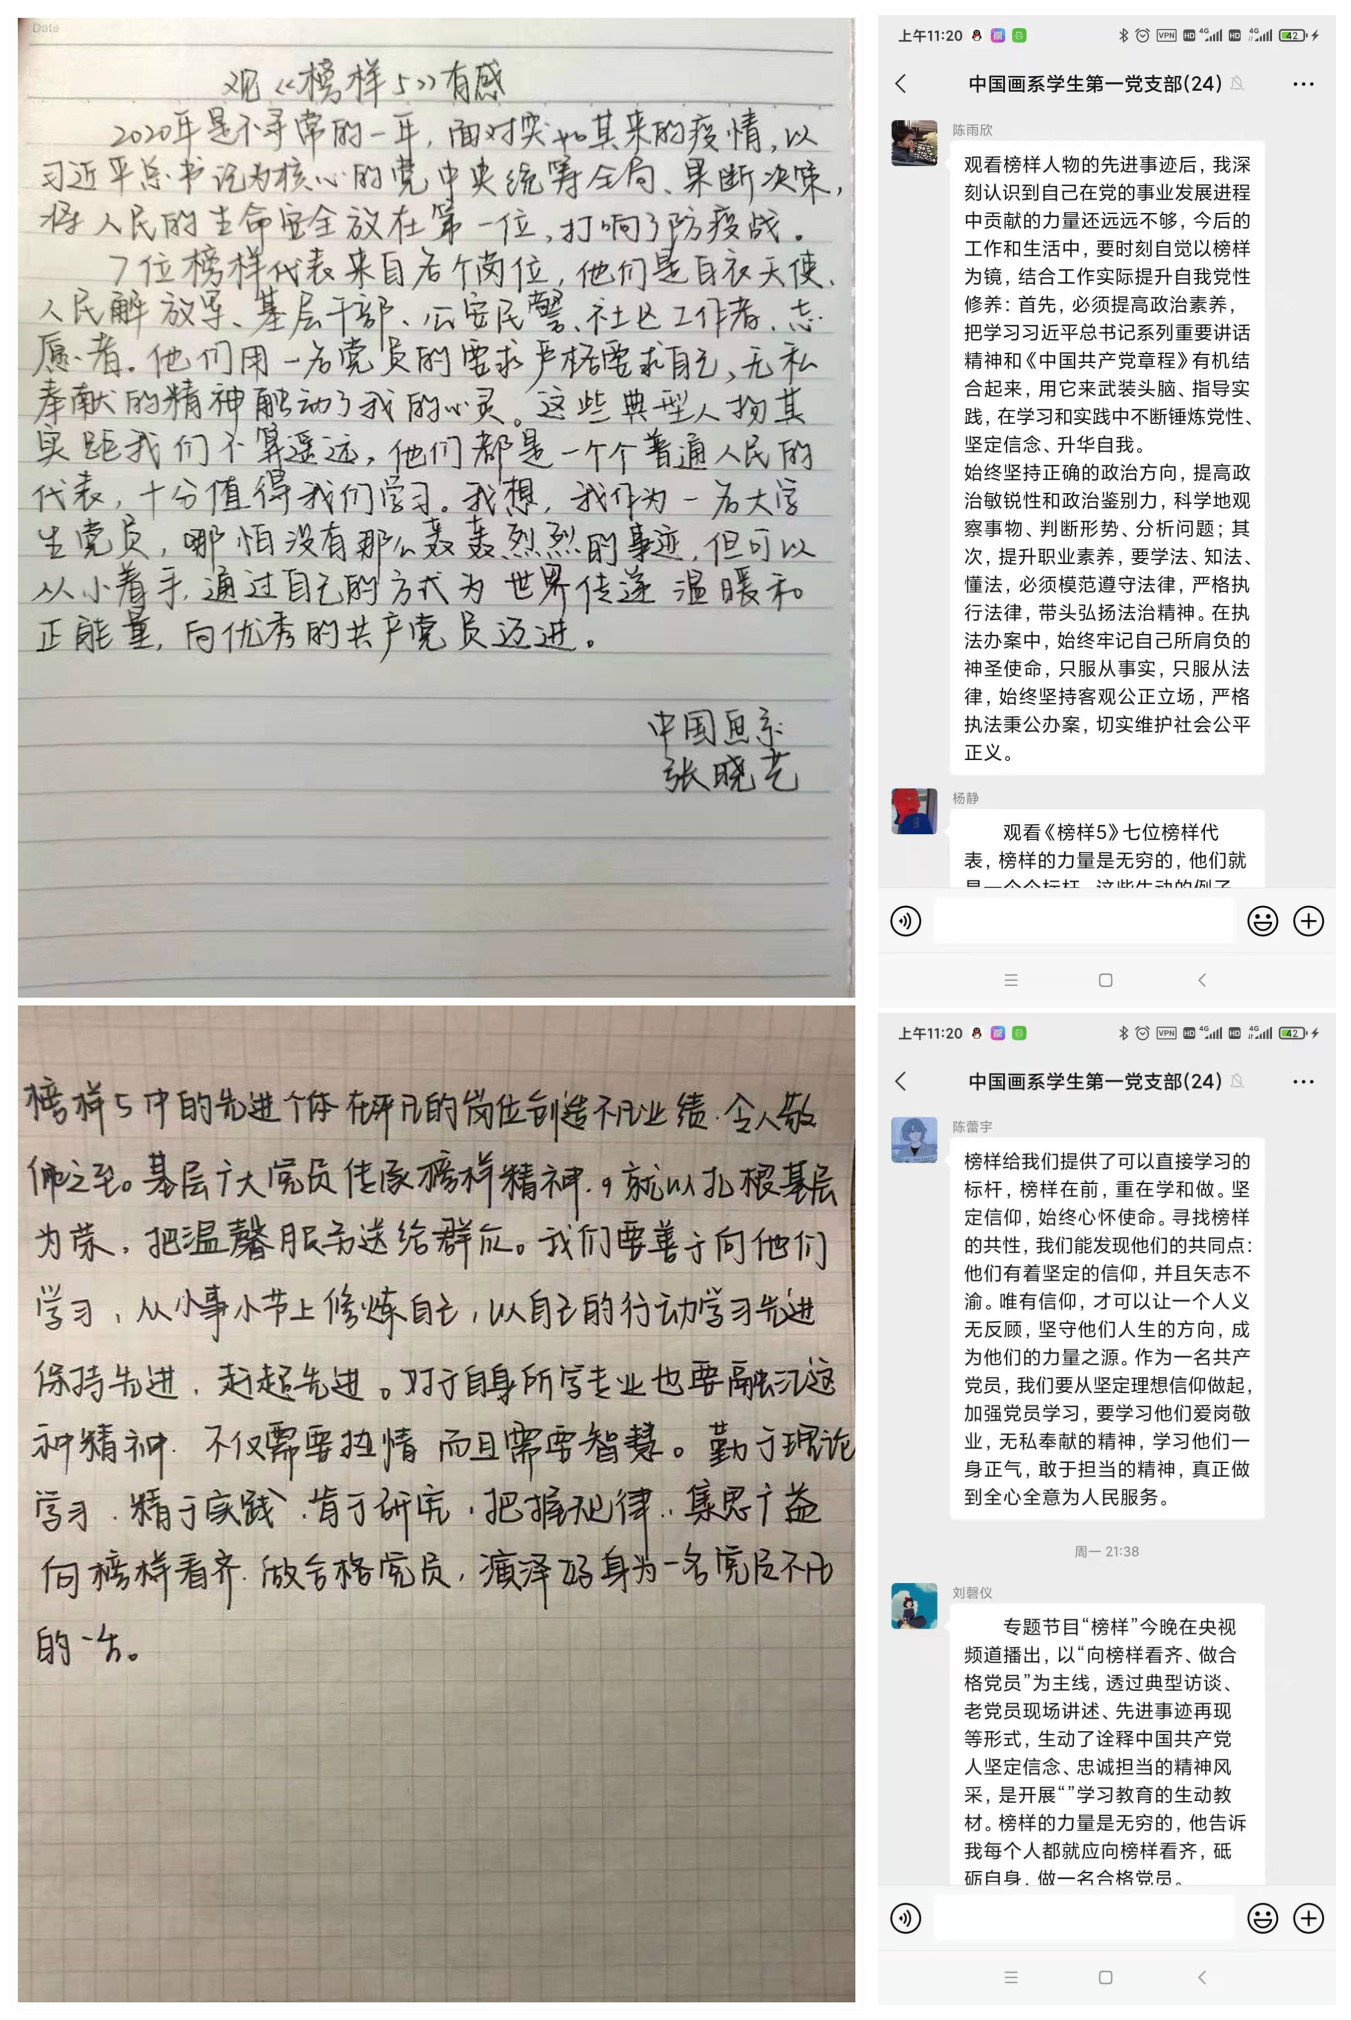 Date
观《榜样5》有感
2020年是不寻常的一年,面对突如其来的疫情,以
习近平总书记为核心的党中央统筹全局、果断决策,
将人民的生命安全放在第一位,打响了防疫战。
7位榜样代表来自各个岗位,他们是白衣天使、
人民解放军、基层干部、公安民警、社区工作者、志
愿者。他们用一名党员的要求严格要求自己,无私
奉献的精神触动了我的心灵。这些典型人物其
实距我们不算遥远,他们都是一个个普通人民的
代表,十分值得我们学习。我想,我作为一名大学
生党员,哪怕没有那么轰轰烈烈的事迹,但可以
从小着手,通过自己的方式为世界传递温暖和
正能量,向优秀的共产党员迈进。
中国画系
张晓艺
榜样5中的先进个体在平凡的岗位创造不凡业绩.令人敬
佩之至。基层广大党员传承榜样精神.就以扎根基层
为荣,把温馨服务送给群众。我们要善于向他们
学习,从小事小节上修炼自己,以自己的行动学习先进
保持先进,赶超先进。对于自身所学专业也要融汇这
种精神.不仅需要热情而且需要智慧。勤于理论
学习.精于实践.肯于研究,把握规律.集思广益
向榜样看齐.做合格党员,演泽身为一名党员不凡
的一生。
上午11:20 VPN HD 4G HD 4G 42
中国画系学生第一党支部(24)
陈雨欣
观看榜样人物的先进事迹后,我深
刻认识到自己在党的事业发展进程
中贡献的力量还远远不够,今后的
工作和生活中,要时刻自觉以榜样
为镜,结合工作实际提升自我党性
修养:首先,必须提高政治素养,
把学习习近平总书记系列重要讲话
精神和《中国共产党章程》有机结
合起来,用它来武装头脑、指导实
践,在学习和实践中不断锤炼党性、
坚定信念、升华自我。
始终坚持正确的政治方向,提高政
治敏锐性和政治鉴别力,科学地观
察事物、判断形势、分析问题;其
次,提升职业素养,要学法、知法、
懂法,必须模范遵守法律,严格执
行法律,带头弘扬法治精神。在执
法办案中,始终牢记自己所肩负的
神圣使命,只服从事实,只服从法
律,始终坚持客观公正立场,严格
执法秉公办案,切实维护社会公平
正义。
杨静
观看《榜样5》七位榜样代
表,榜样的力量是无穷的,他们就
是一个个标杆,这些生动的例子
上午11:20 VPN HD 4G HD 4G 42
中国画系学生第一党支部(24)
陈蕾宇
榜样给我们提供了可以直接学习的
标杆,榜样在前,重在学和做。坚
定信仰,始终心怀使命。寻找榜样
的共性,我们能发现他们的共同点:
他们有着坚定的信仰,并且矢志不
渝。唯有信仰,才可以让一个人义
无反顾,坚守他们人生的方向,成
为他们的力量之源。作为一名共产
党员,我们要从坚定理想信仰做起,
加强党员学习,要学习他们爱岗敬
业,无私奉献的精神,学习他们一
身正气,敢于担当的精神,真正做
到全心全意为人民服务。
周一 21:38
刘磬仪
专题节目“榜样”今晚在央视
频道播出,以“向榜样看齐、做合
格党员”为主线,透过典型访谈、
老党员现场讲述、先进事迹再现
等形式,生动了诠释中国共产党
人坚定信念、忠诚担当的精神风
采,是开展“”学习教育的生动教
材。榜样的力量是无穷的,他告诉
我每个人都就应向榜样看齐,砥
砺自身,做一名合格党员。